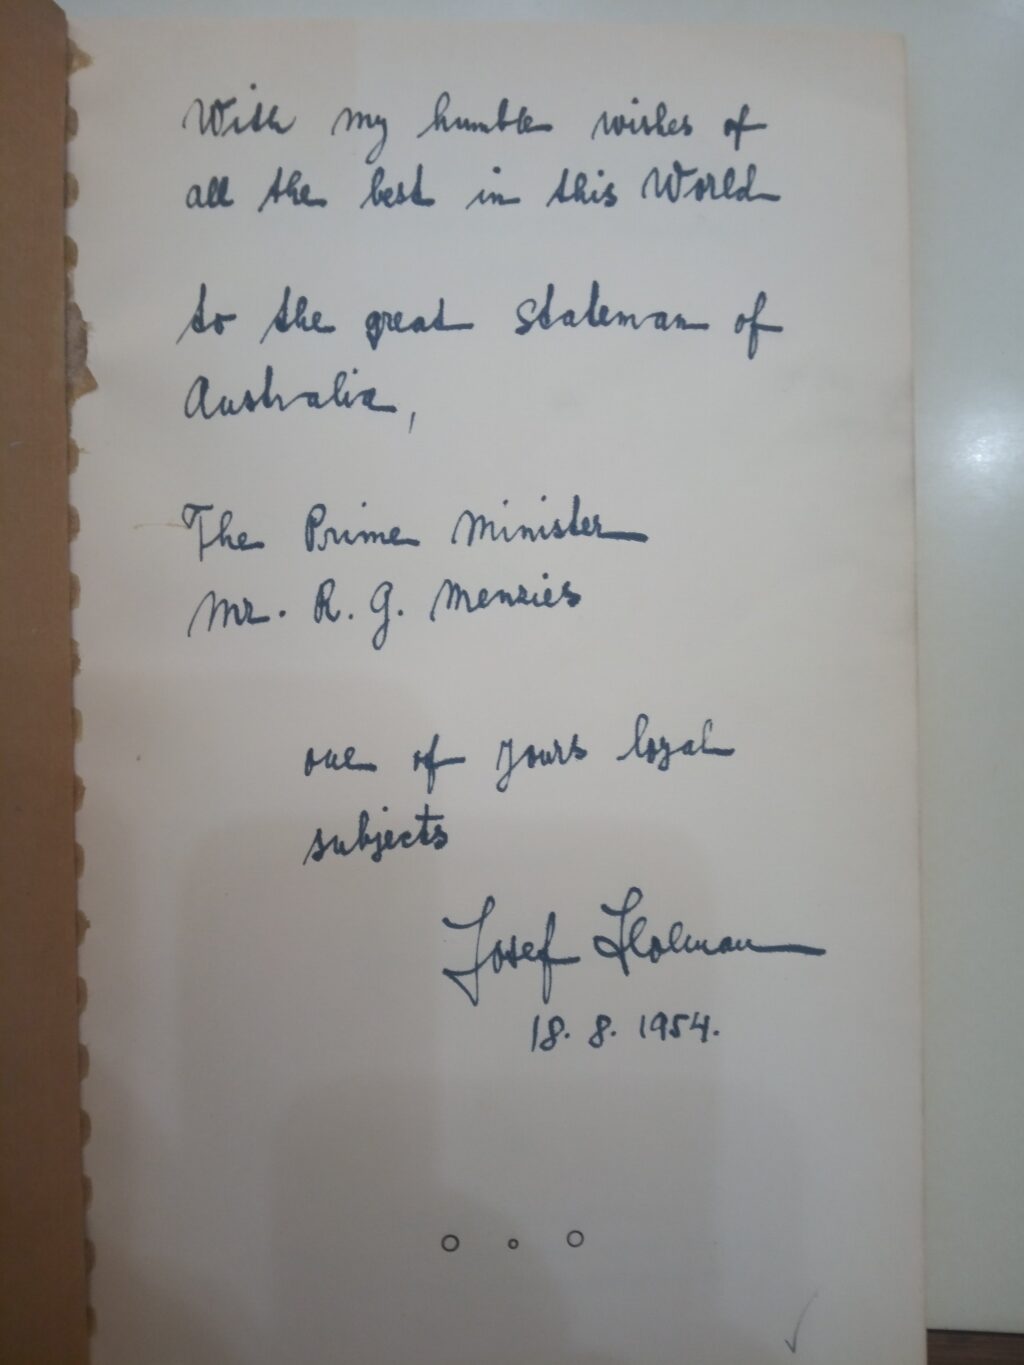 With my humble wishes of
all the best in this World
to the great stateman of
Australia,
The Prime Minister
Mr. R. G. Menzies
one of yours loyal
subjects
Josef Holman
18. 8. 1954.